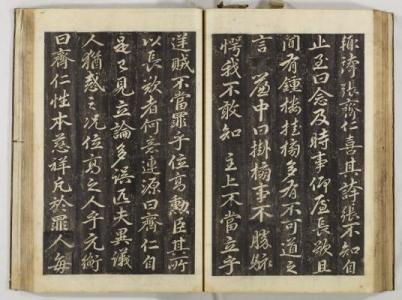 極誇張齊仁喜其誇張不知自
止至曰念及時事仰屋長歎且
間有鍾樓掛榜多有不可道之
言 蓋中曰掛榜事不勝駭
愕我不敢知 主上不當立乎
逆賊不當罪乎位高勳臣其所
以長歎者何意連源曰齊仁自
是己見立論多誤近夫異議
人猶惑之況位高之人乎元衡
曰齊仁性本慈祥凡於罪人每